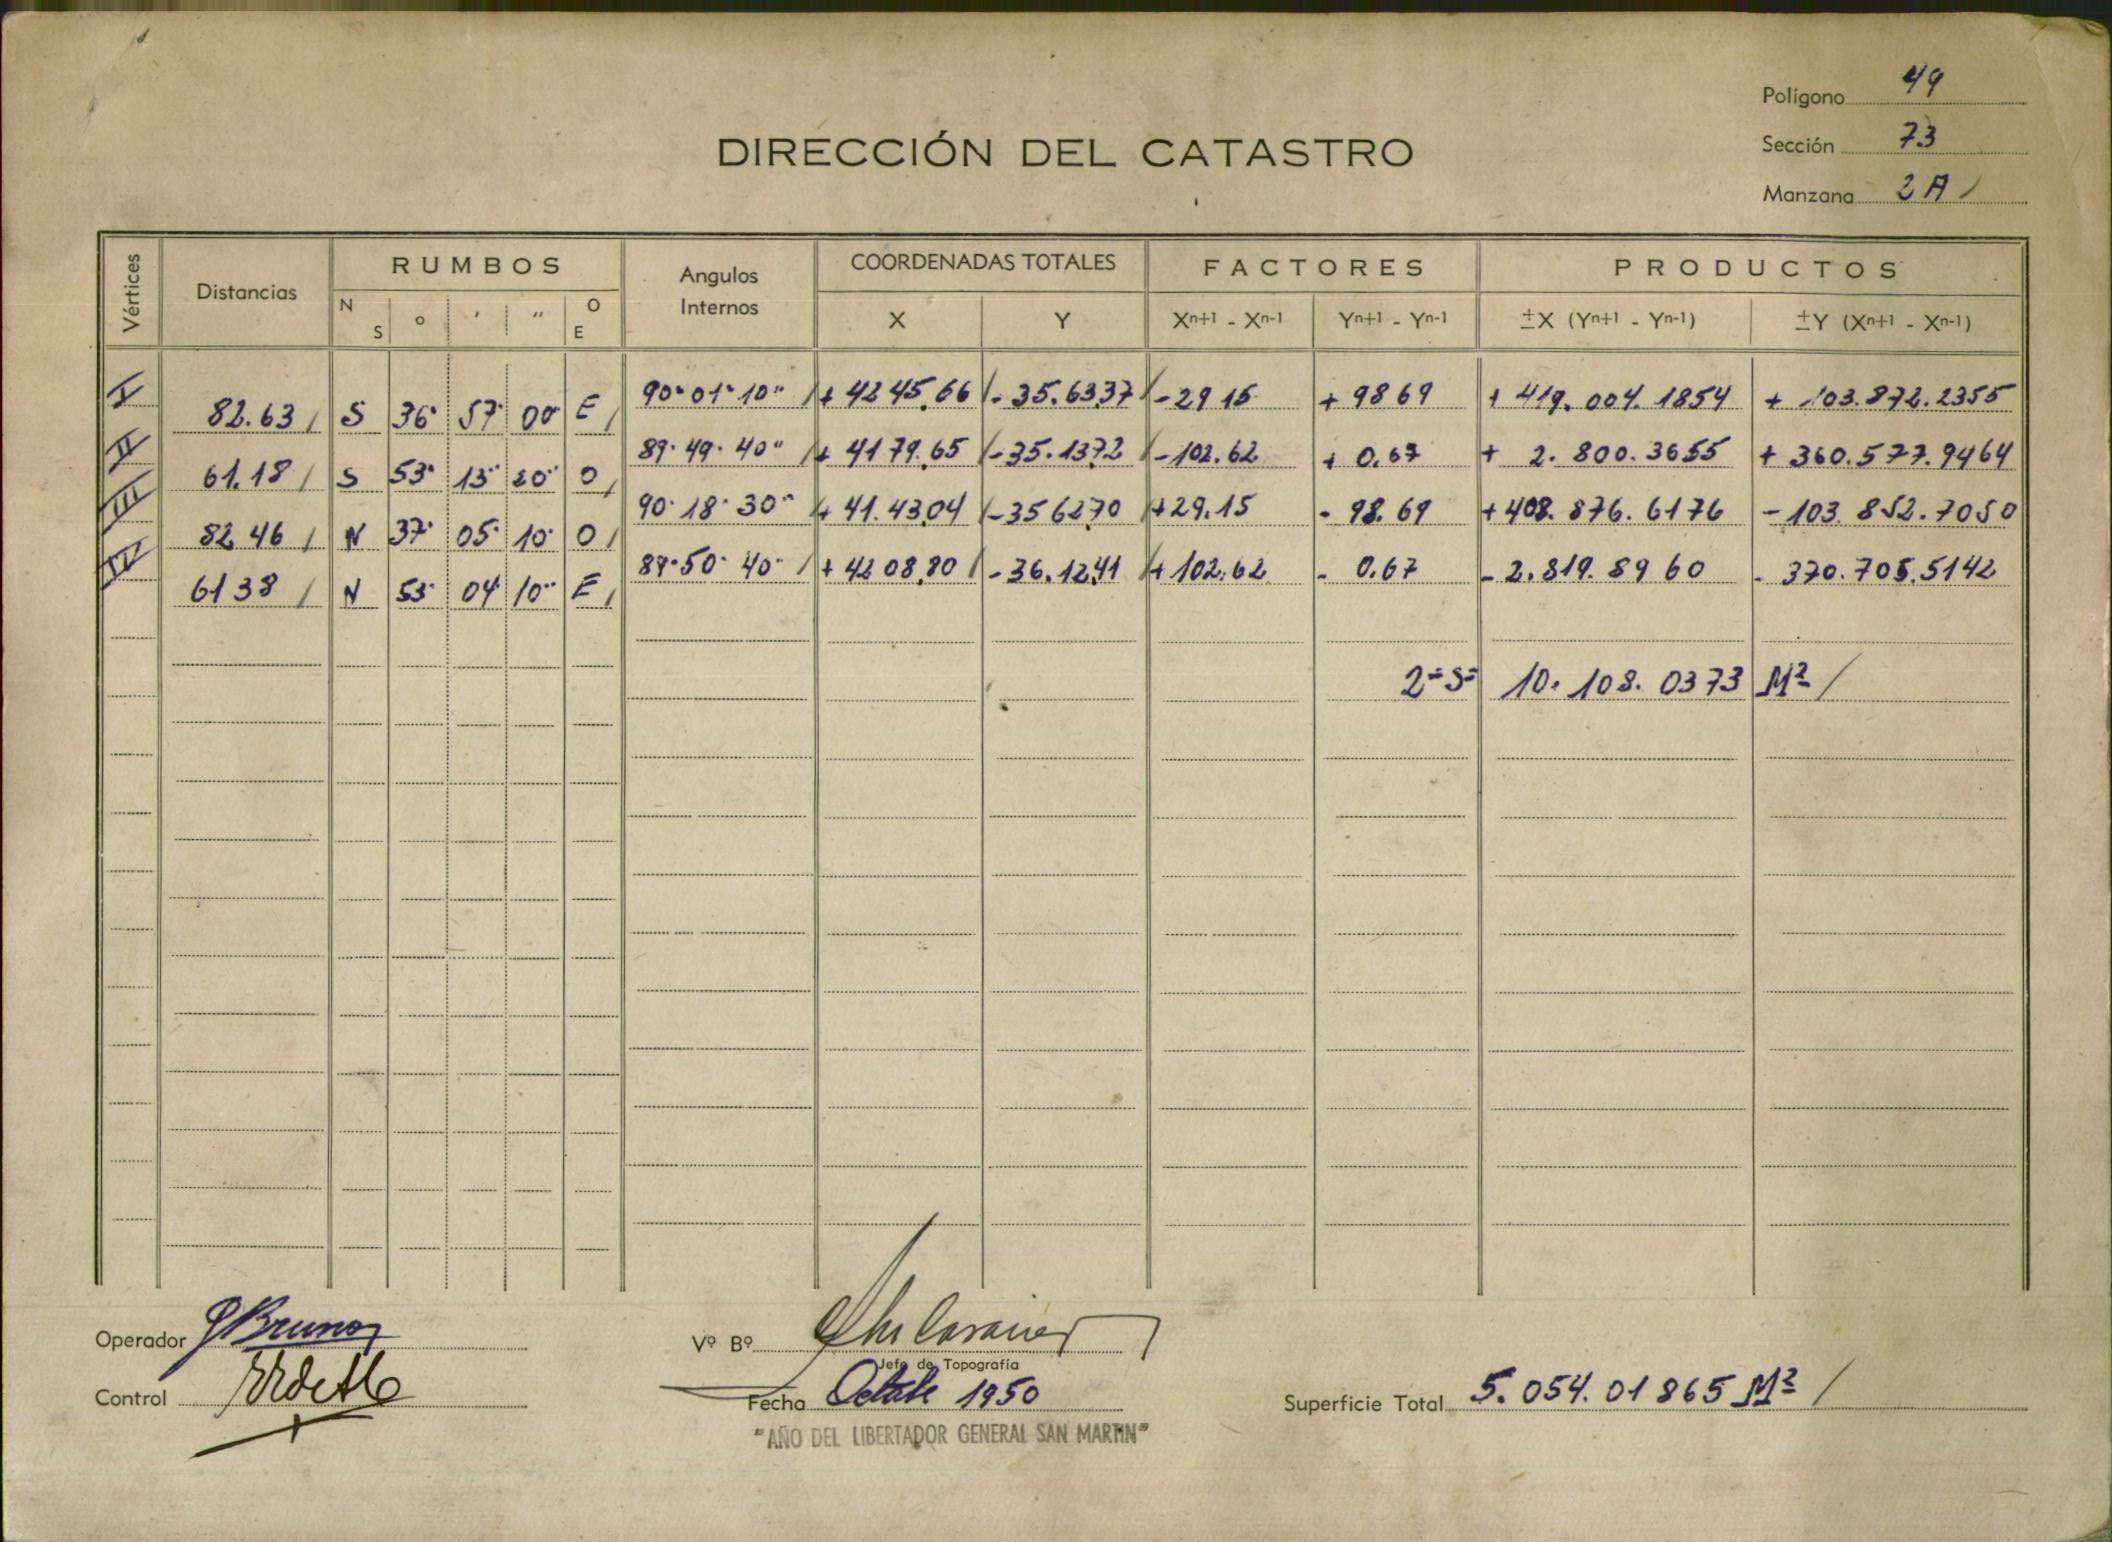 Polígono 49
Sección 73
Manzana 2A /
DIRECCIÓN DEL CATASTRO
Vértices Distancias RUMBOS Angulos Internos COORDENADAS TOTALES FACTORES PRODUCTOS
N S ° ' " O E X Y Xn+1 - Xn-1 Yn+1 - Yn-1 ±X (Yn+1 - Yn-1) ±Y (Xn+1 - Xn-1)
I 90° 01' 10" / + 4245.66 / - 35.6337 / - 29 15 + 98 69 + 419. 004. 1854 + 103.872.2355
82.63 / S 36° 57' 00" E /
II 89° 49' 40" / + 4179.65 / - 35.1372 / - 102.62 + 0.67 + 2. 800. 3655 + 360.577.9464
61.18 / S 53° 13' 20" O /
III 90° 18' 30" + 41.4304 / - 356270 / + 29.15 - 98.69 + 408. 876. 6176 - 103. 852. 7050
82 46 / N 37° 05' 10" O /
IV 89° 50' 40" / + 4208.80 / - 36.1241 / + 102.62 - 0.67 - 2. 819. 89 60 - 370. 705. 5142
61 38 / N 53° 04' 10" E /
2=S= 10. 108. 0373 M² /
Operador Bruno
Vº Bº
Jefe de Topografía
Control
Fecha Octubre 1950
Superficie Total 5. 054. 01 865 M² /
"AÑO DEL LIBERTADOR GENERAL SAN MARTIN"